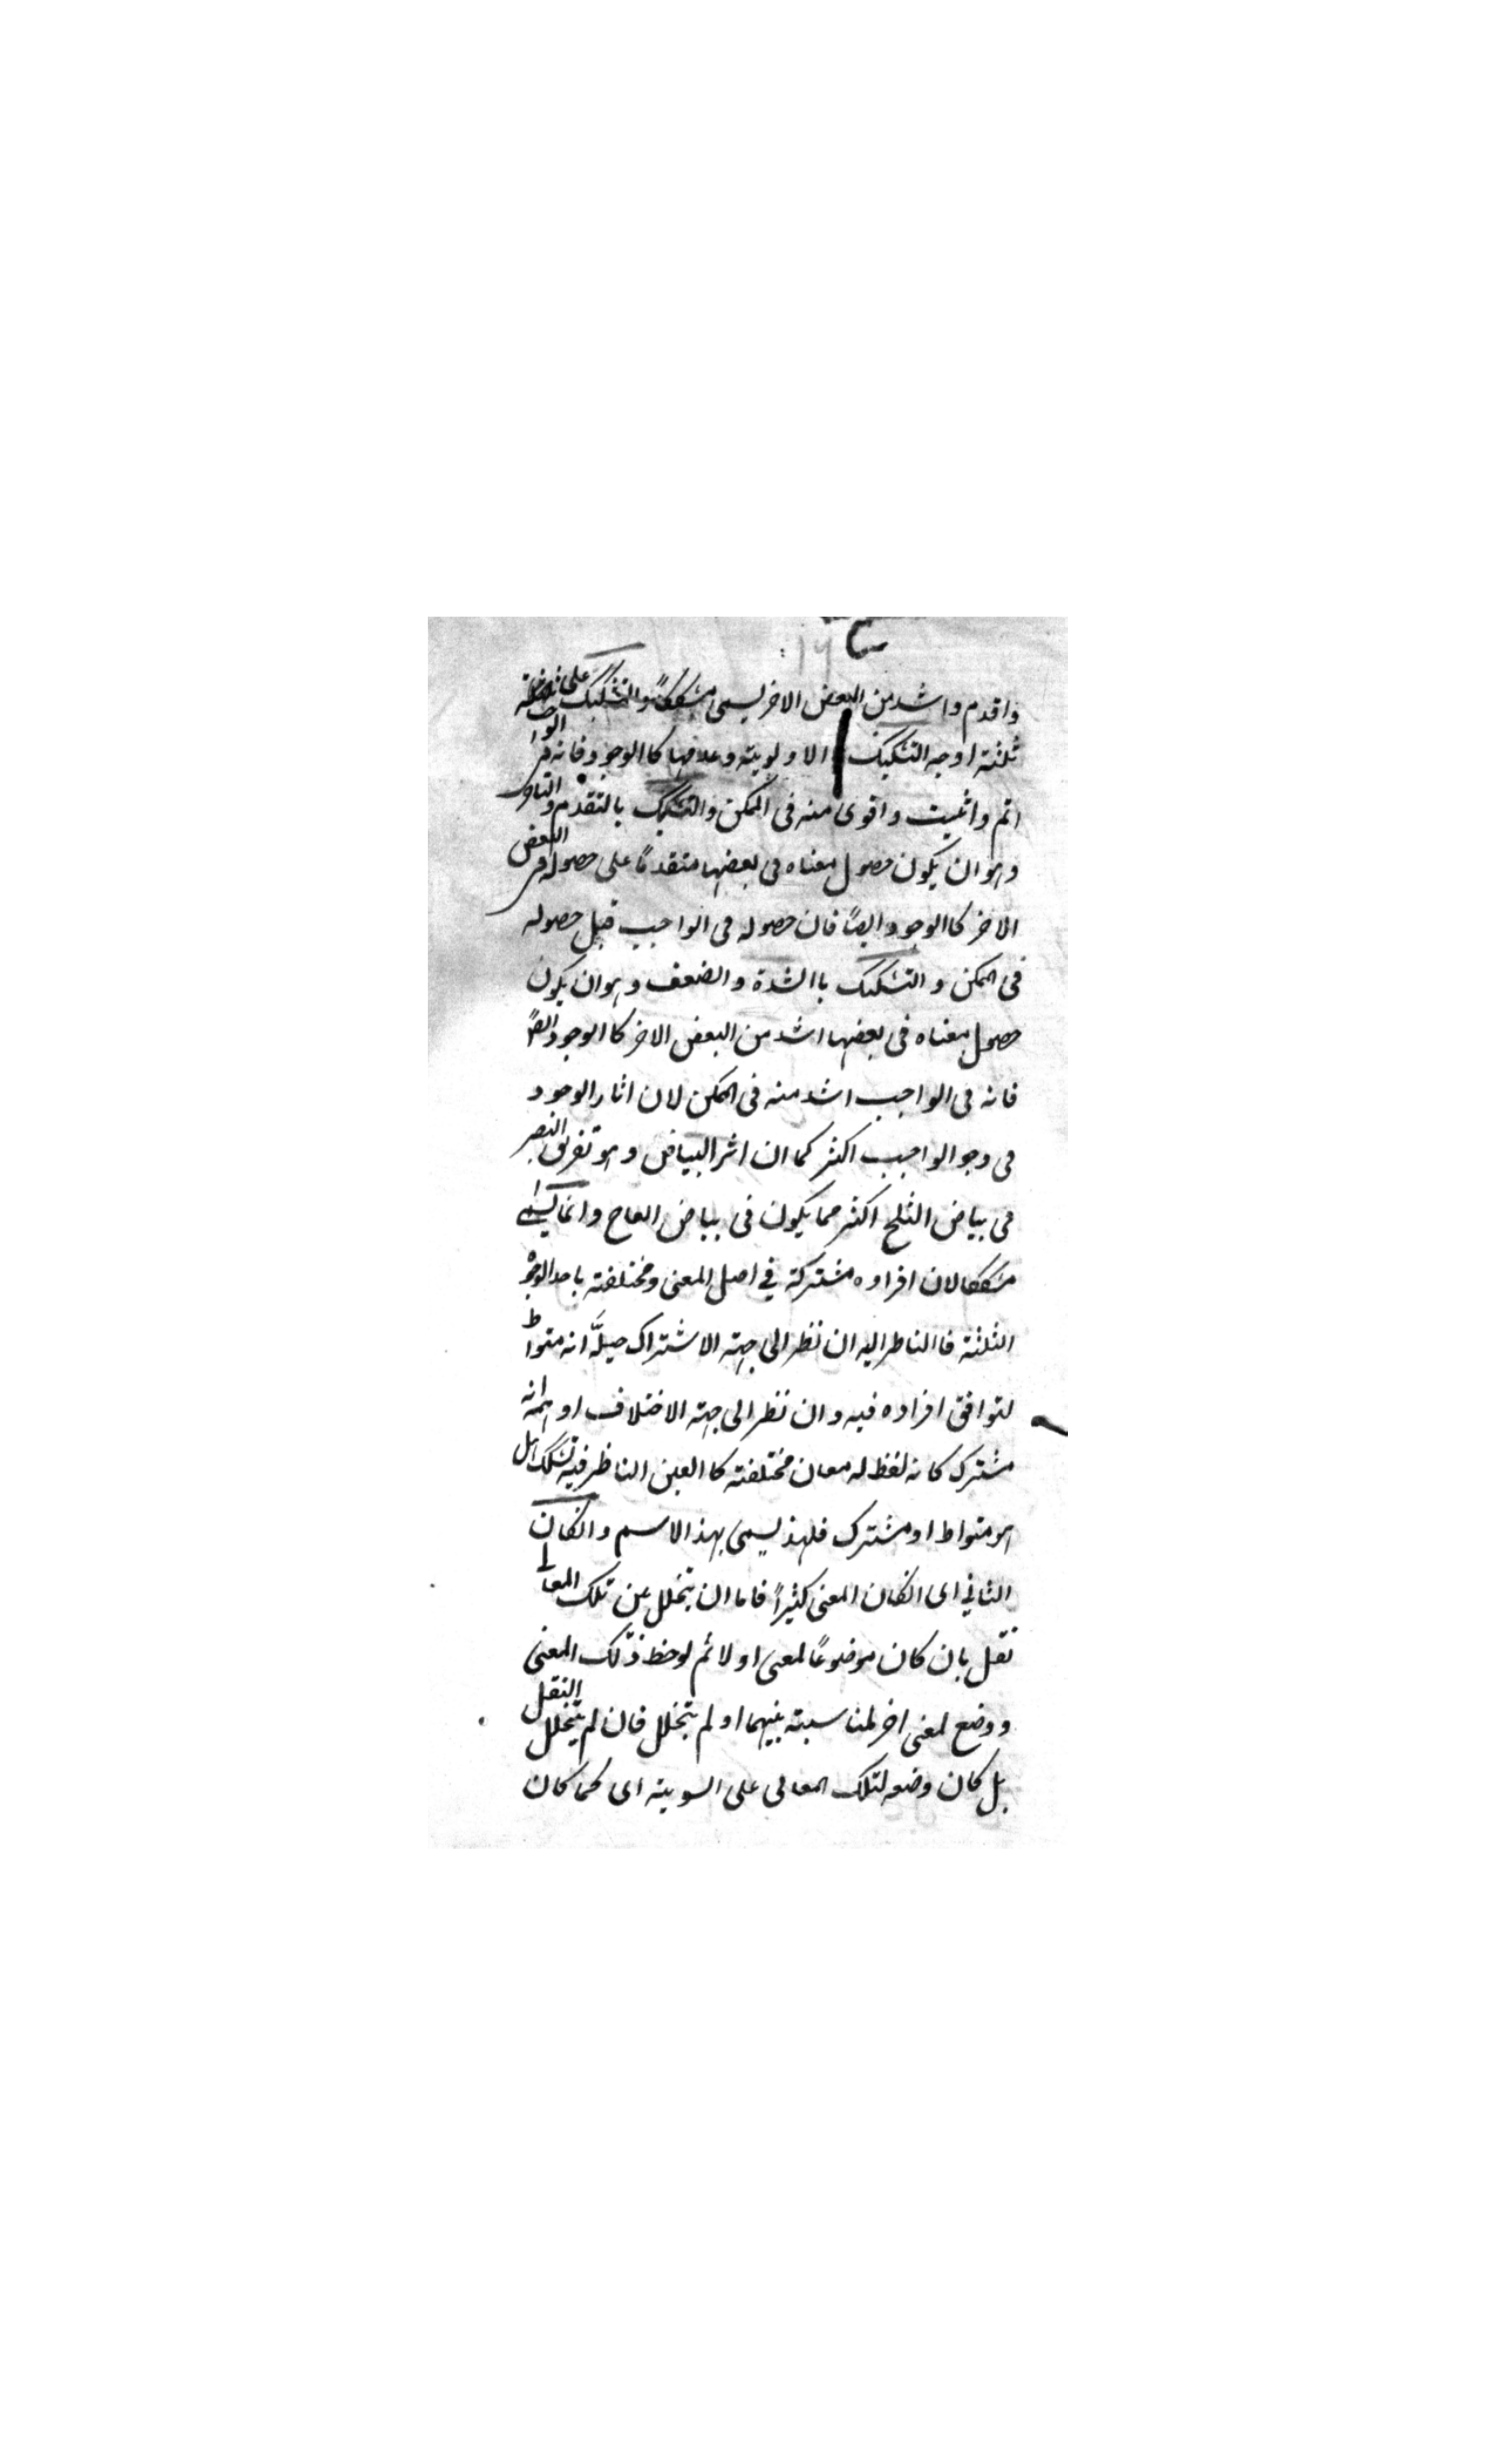 واقدم واشد من البعض الاخر يسمى مشككا والتشكيك على ثلثة
ثلثة اوجه التشكيك الاولوية وعدمها كاالوجود فانه فى الواجب
اتم واثبت واقوى منه فى الممكن والتشكيك بالتقدم والتاخر
وهو ان يكون حصول معناه فى بعضها متقدمًا على حصوله فى البعض
الاخر كاالوجود ايضًا فان حصوله فى الواجب قبل حصوله
فى الممكن والتشكيك باالشدة والضعف وهو ان يكون
حصول معناه فى بعضها اشد من البعض الاخر كاالوجود ايضًا
فانه فى الواجب اشد منه فى الممكن لان اثار الوجود
فى وجو الواجب اكثر كما ان اثر البياض وهو تفريق البصر
فى بياض الثلج اكثر مما يكون فى بياض العاج وانما يسمى
مشككا لان افراده مشتركة في اصل المعنى ومختلفة باحد الوجوه
الثلثة فاالناظر اليه ان نظر الى جهة الاشتراك خيله انه متواط
لتوافق افراده فيه وان نظر الى جهة الاختلاف اوهمه انه
مشترك كانه لفظ له معان مختلفة كا العين الناظر فيه تشكك هل
هو متواط او مشترك فلهذ يسمى بهذ الاسم وانكان
الثاني اى انكان المعنى كثيرًا فاما ان يتخلل بين تلك المعانى
نقل بان كان موضوعًا لمعنى اولا ثم لوحظ ذلك المعنى
ووضع لمعنى اخر لمناسبة بينهما او لم يتخلل فان لم يتخلل النقل
بل كان وضعه لتلك المعانى على السوية اى كما كان